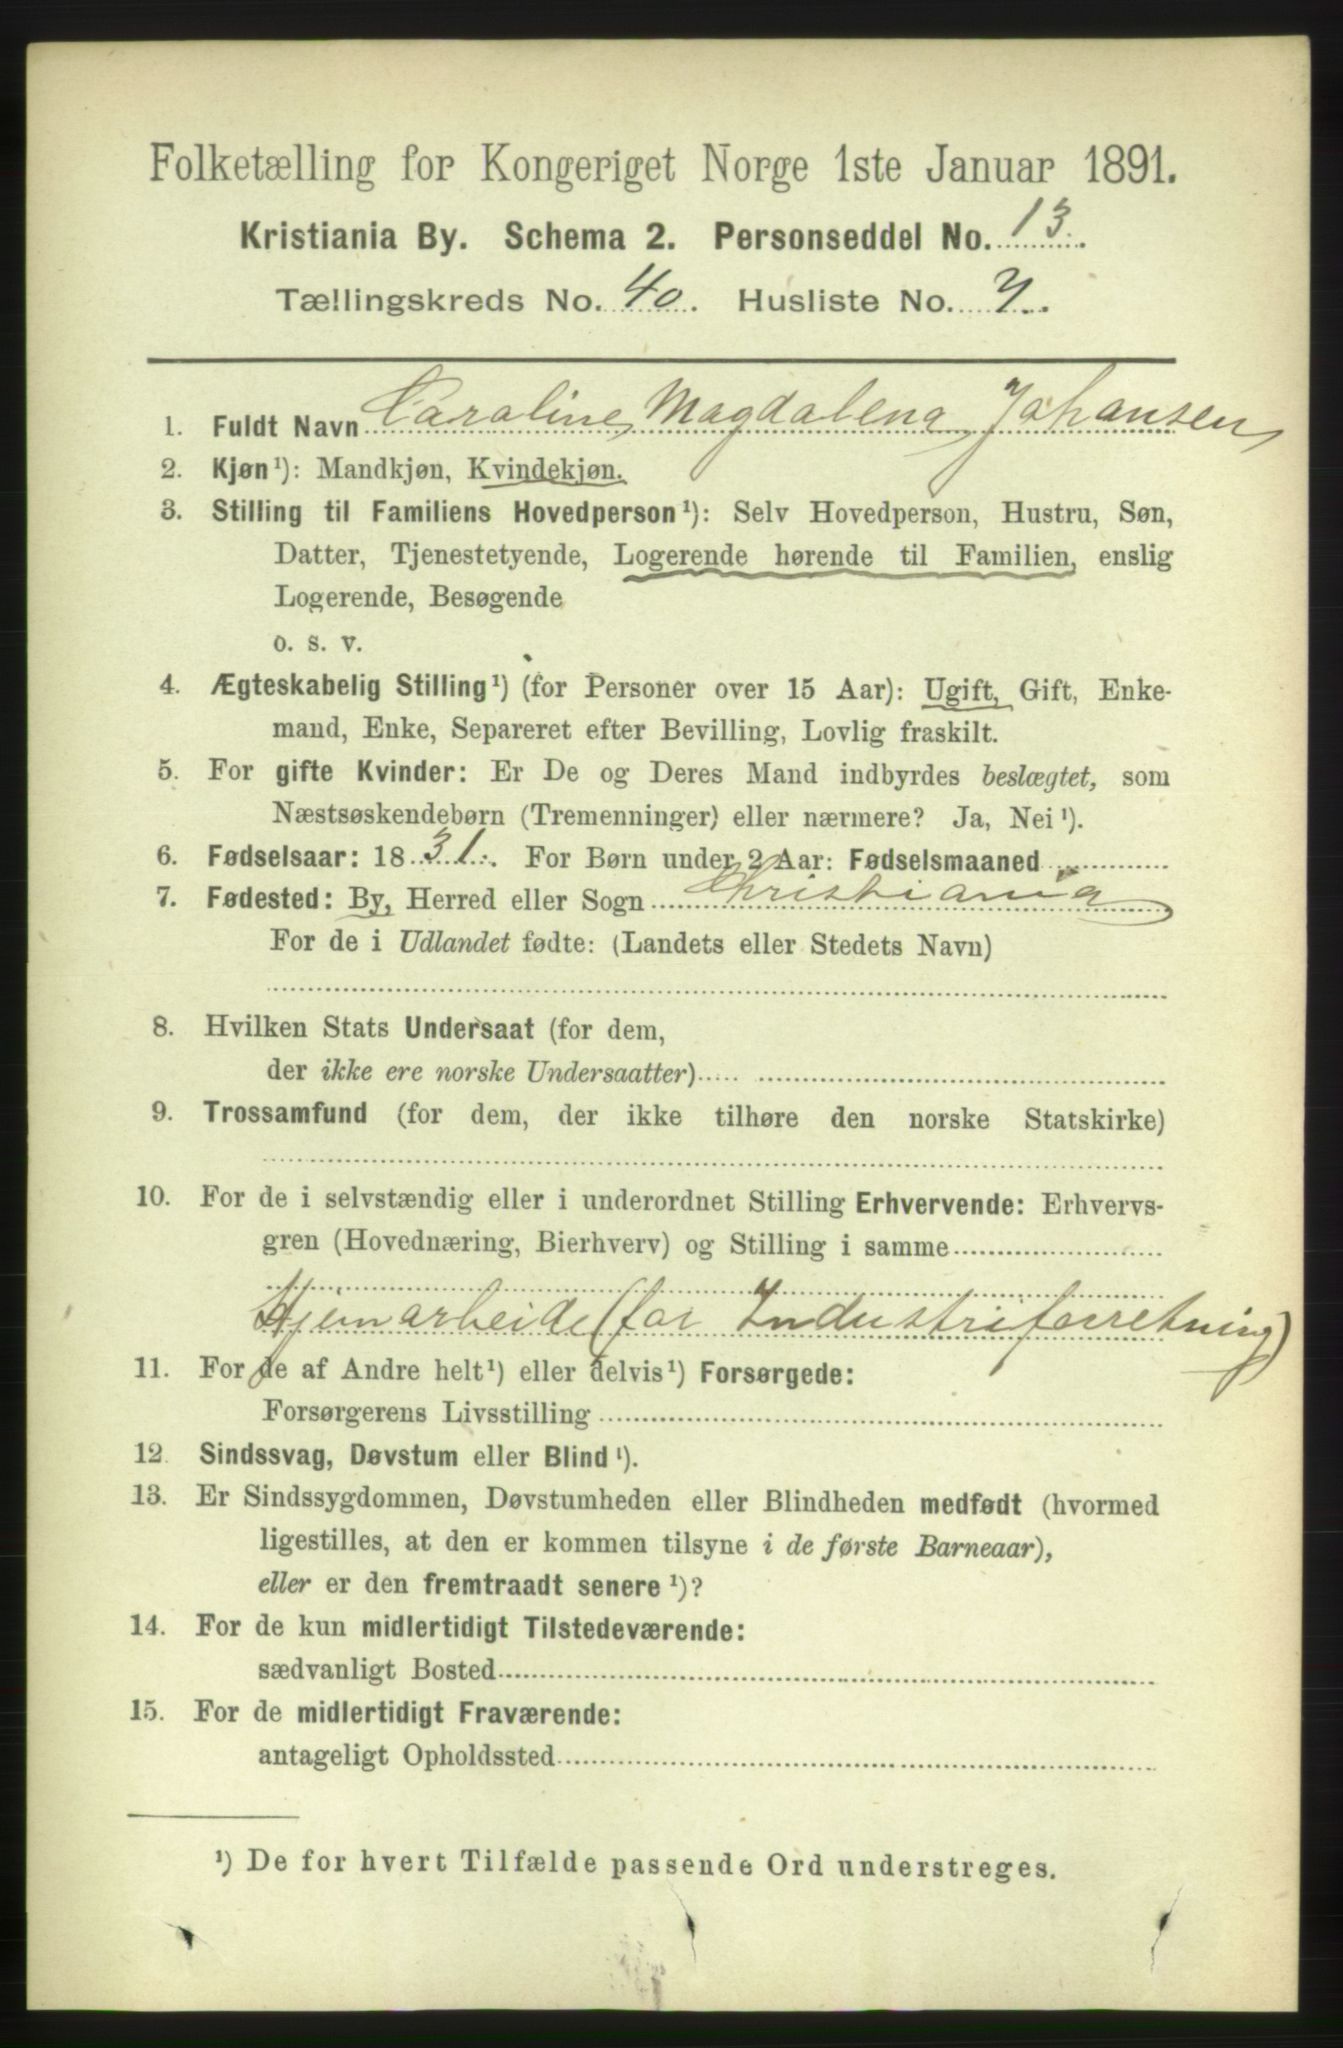 Folketælling for Kongeriget Norge 1ste Januar 1891.
Kristiania By. Schema 2. Personseddel No. 13.
Tællingskreds No. 40. Husliste No. 7.
1. Fuldt Navn Caroline Magdalena Johansen
2. Kjøn¹): Mandkjøn, Kvindekjøn.
3. Stilling til Familiens Hovedperson¹): Selv Hovedperson, Hustru, Søn,
Datter, Tjenestetyende, Logerende hørende til Familien, enslig
Logerende, Besøgende
o. s. v.
4. Ægteskabelig Stilling¹) (for Personer over 15 Aar): Ugift, Gift, Enke-
mand, Enke, Separeret efter Bevilling, Lovlig fraskilt.
5. For gifte Kvinder: Er De og Deres Mand indbyrdes beslægtet, som
Næstsøskendebørn (Tremenninger) eller nærmere? Ja, Nei¹).
6. Fødselsaar: 1831. For Børn under 2 Aar: Fødselsmaaned
7. Fødested: By, Herred eller Sogn Christiania
For de i Udlandet fødte: (Landets eller Stedets Navn)
8. Hvilken Stats Undersaat (for dem,
der ikke ere norske Undersaatter)
9. Trossamfund (for dem, der ikke tilhøre den norske Statskirke)
10. For de i selvstændig eller i underordnet Stilling Erhvervende: Erhvervs-
gren (Hovednæring, Bierhverv) og Stilling i samme
Hjemarbeide (for Industriforretning)
11. For de af Andre helt¹) eller delvis¹) Forsørgede:
Forsørgerens Livsstilling
12. Sindssvag, Døvstum eller Blind¹).
13. Er Sindssygdommen, Døvstumheden eller Blindheden medfødt (hvormed
ligestilles, at den er kommen tilsyne i de første Barneaar),
eller er den fremtraadt senere¹)?
14. For de kun midlertidigt Tilstedeværende:
sædvanligt Bosted
15. For de midlertidigt Fraværende:
antageligt Opholdssted
¹) De for hvert Tilfælde passende Ord understreges.